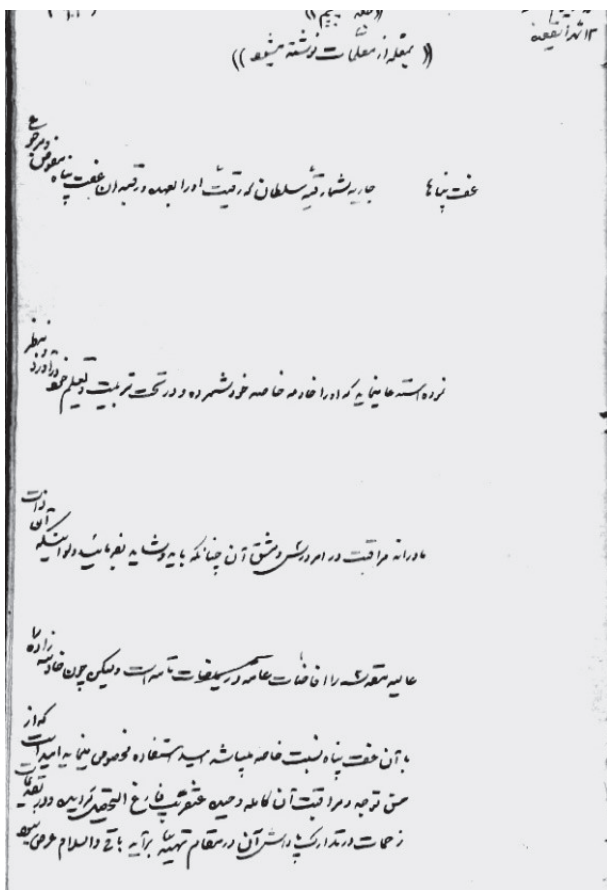 (( بمعلمه از معلمات نوشته میشود ))
عفت پناها جاریه شما رقیه سلطان که رقیت او را بعهده و رقبه آن عفت پناه مفوض و مرجوع
نموده استدعا مینماید که او را خادمه خاصه خود شمرده و در تحت تربیت و تعلیم خود درآورد و بنظر
مادرانه مراقبت در امر درس و مشق آن چنانکه باید و شاید بفرمائید ولو اینکه آن ذات
عالیه مقدسه را افاضات عامه در تامه است ولیکن چون خادمه زاده را
با آن عفت پناه نسبت خاصه میباشد امید استفاده مخصوص مینماید امید است که از
حسن توجه و مراقبت آن کامله وحیده عنقریب فارغ التحصیل گردیده و در
زحمات و تدارک پاداش آن در مقام تهیه برآید باقی والسلام